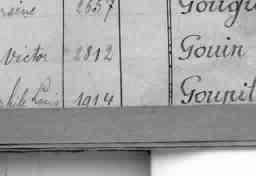 2657 Gougu
Victor 2812 Gouin
Louis 1914 Goupil